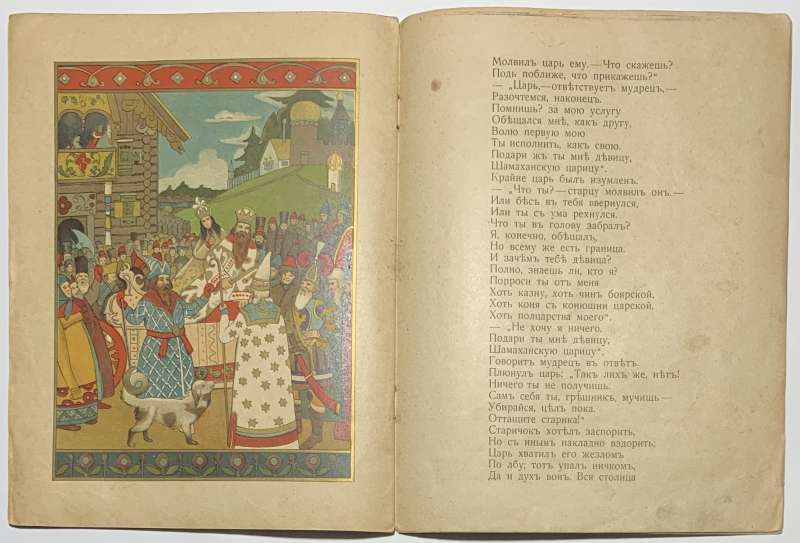 Молвилъ царь ему.—Что скажешь?
Подь поближе, что прикажешь?“
— „Царь,—отвѣтствуетъ мудрецъ,—
Разочтемся, наконецъ.
Помнишь? за мою услугу
Обѣщался мнѣ, какъ другу,
Волю первую мою
Ты исполнить, какъ свою.
Подари жъ ты мнѣ дѣвицу,
Шамаханскую царицу“.
Крайне царь былъ изумленъ.
— „Что ты?—старцу молвилъ онъ.—
Или бѣсъ въ тебя ввернулся,
Или ты съ ума рехнулся.
Что ты въ голову забралъ?
Я, конечно, обѣщалъ,
Но всему же есть граница.
И зачѣмъ тебѣ дѣвица?
Полно, знаешь ли, кто я?
Попроси ты отъ меня
Хоть казну, хоть чинъ боярской,
Хоть коня съ конюшни царской,
Хоть полцарства моего“.
— „Не хочу я ничего.
Подари ты мнѣ дѣвицу,
Шамаханскую царицу“,
Говоритъ мудрецъ въ отвѣтъ.
Плюнулъ царь: „Такъ лихъ же, нѣтъ!
Ничего ты не получишь.
Самъ себя ты, грѣшникъ, мучишь—
Убирайся, цѣлъ пока.
Оттащите старика!“
Старичокъ хотѣлъ заспорить,
Но съ инымъ накладно вздорить;
Царь хватилъ его жезломъ
По лбу; тотъ упалъ ничкомъ,
Да и духъ вонъ. Вся столица